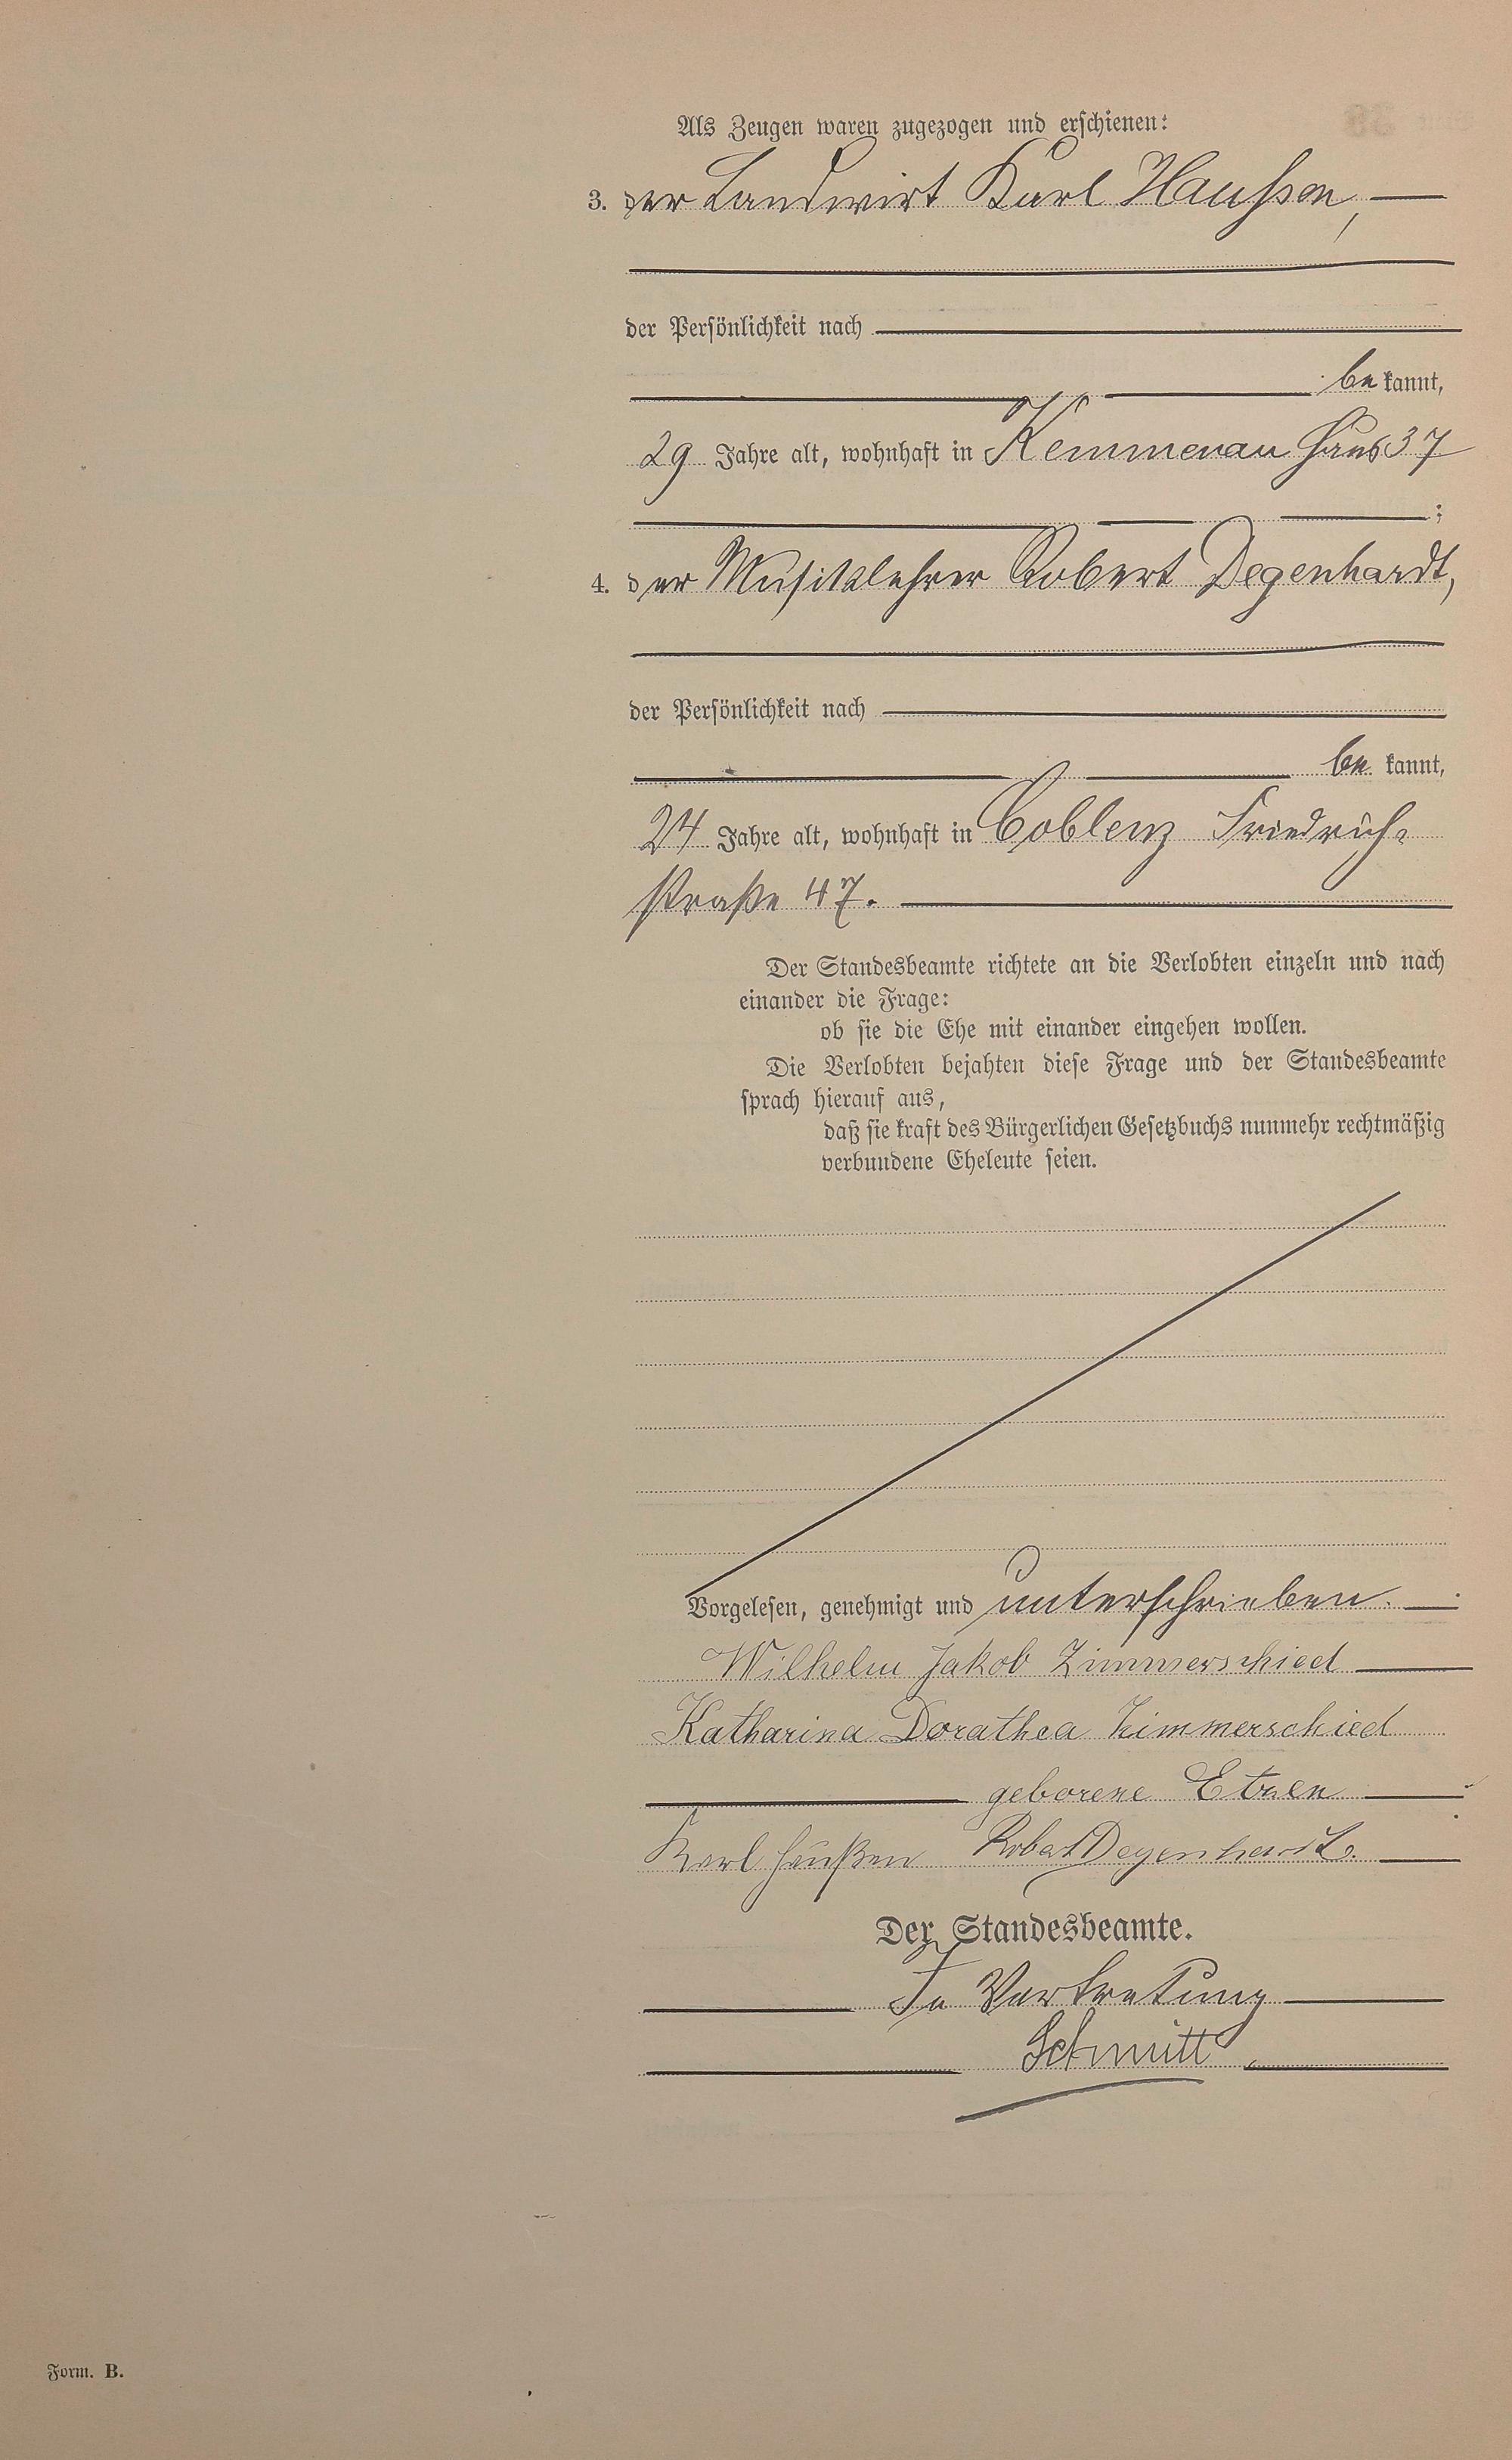 Als Zeugen waren zugezogen und erschienen:
3. der Landwirt Karl Haußen,
der Persönlichkeit nach
be kannt,
29 Jahre alt, wohnhaft in Kemmenau Haus 37
;
4. der Musiklehrer Robert Degenhardt,
der Persönlichkeit nach
be kannt,
24 Jahre alt, wohnhaft in Coblenz Friedrich-
straße 47.
Der Standesbeamte richtete an die Verlobten einzeln und nach
einander die Frage:
ob sie die Ehe mit einander eingehen wollen.
Die Verlobten bejahten diese Frage und der Standesbeamte
sprach hierauf aus,
daß sie kraft des Bürgerlichen Gesetzbuchs nunmehr rechtmäßig
verbundene Eheleute seien.
Vorgelesen, genehmigt und unterschrieben.
Wilhelm Jakob Zimmerschied
Katharina Dorathea Zimmerschied
geborene
Karl Haußen Robert Degenhardt.
Der Standesbeamte.
In Vertretung
Schmitt
Form. B.